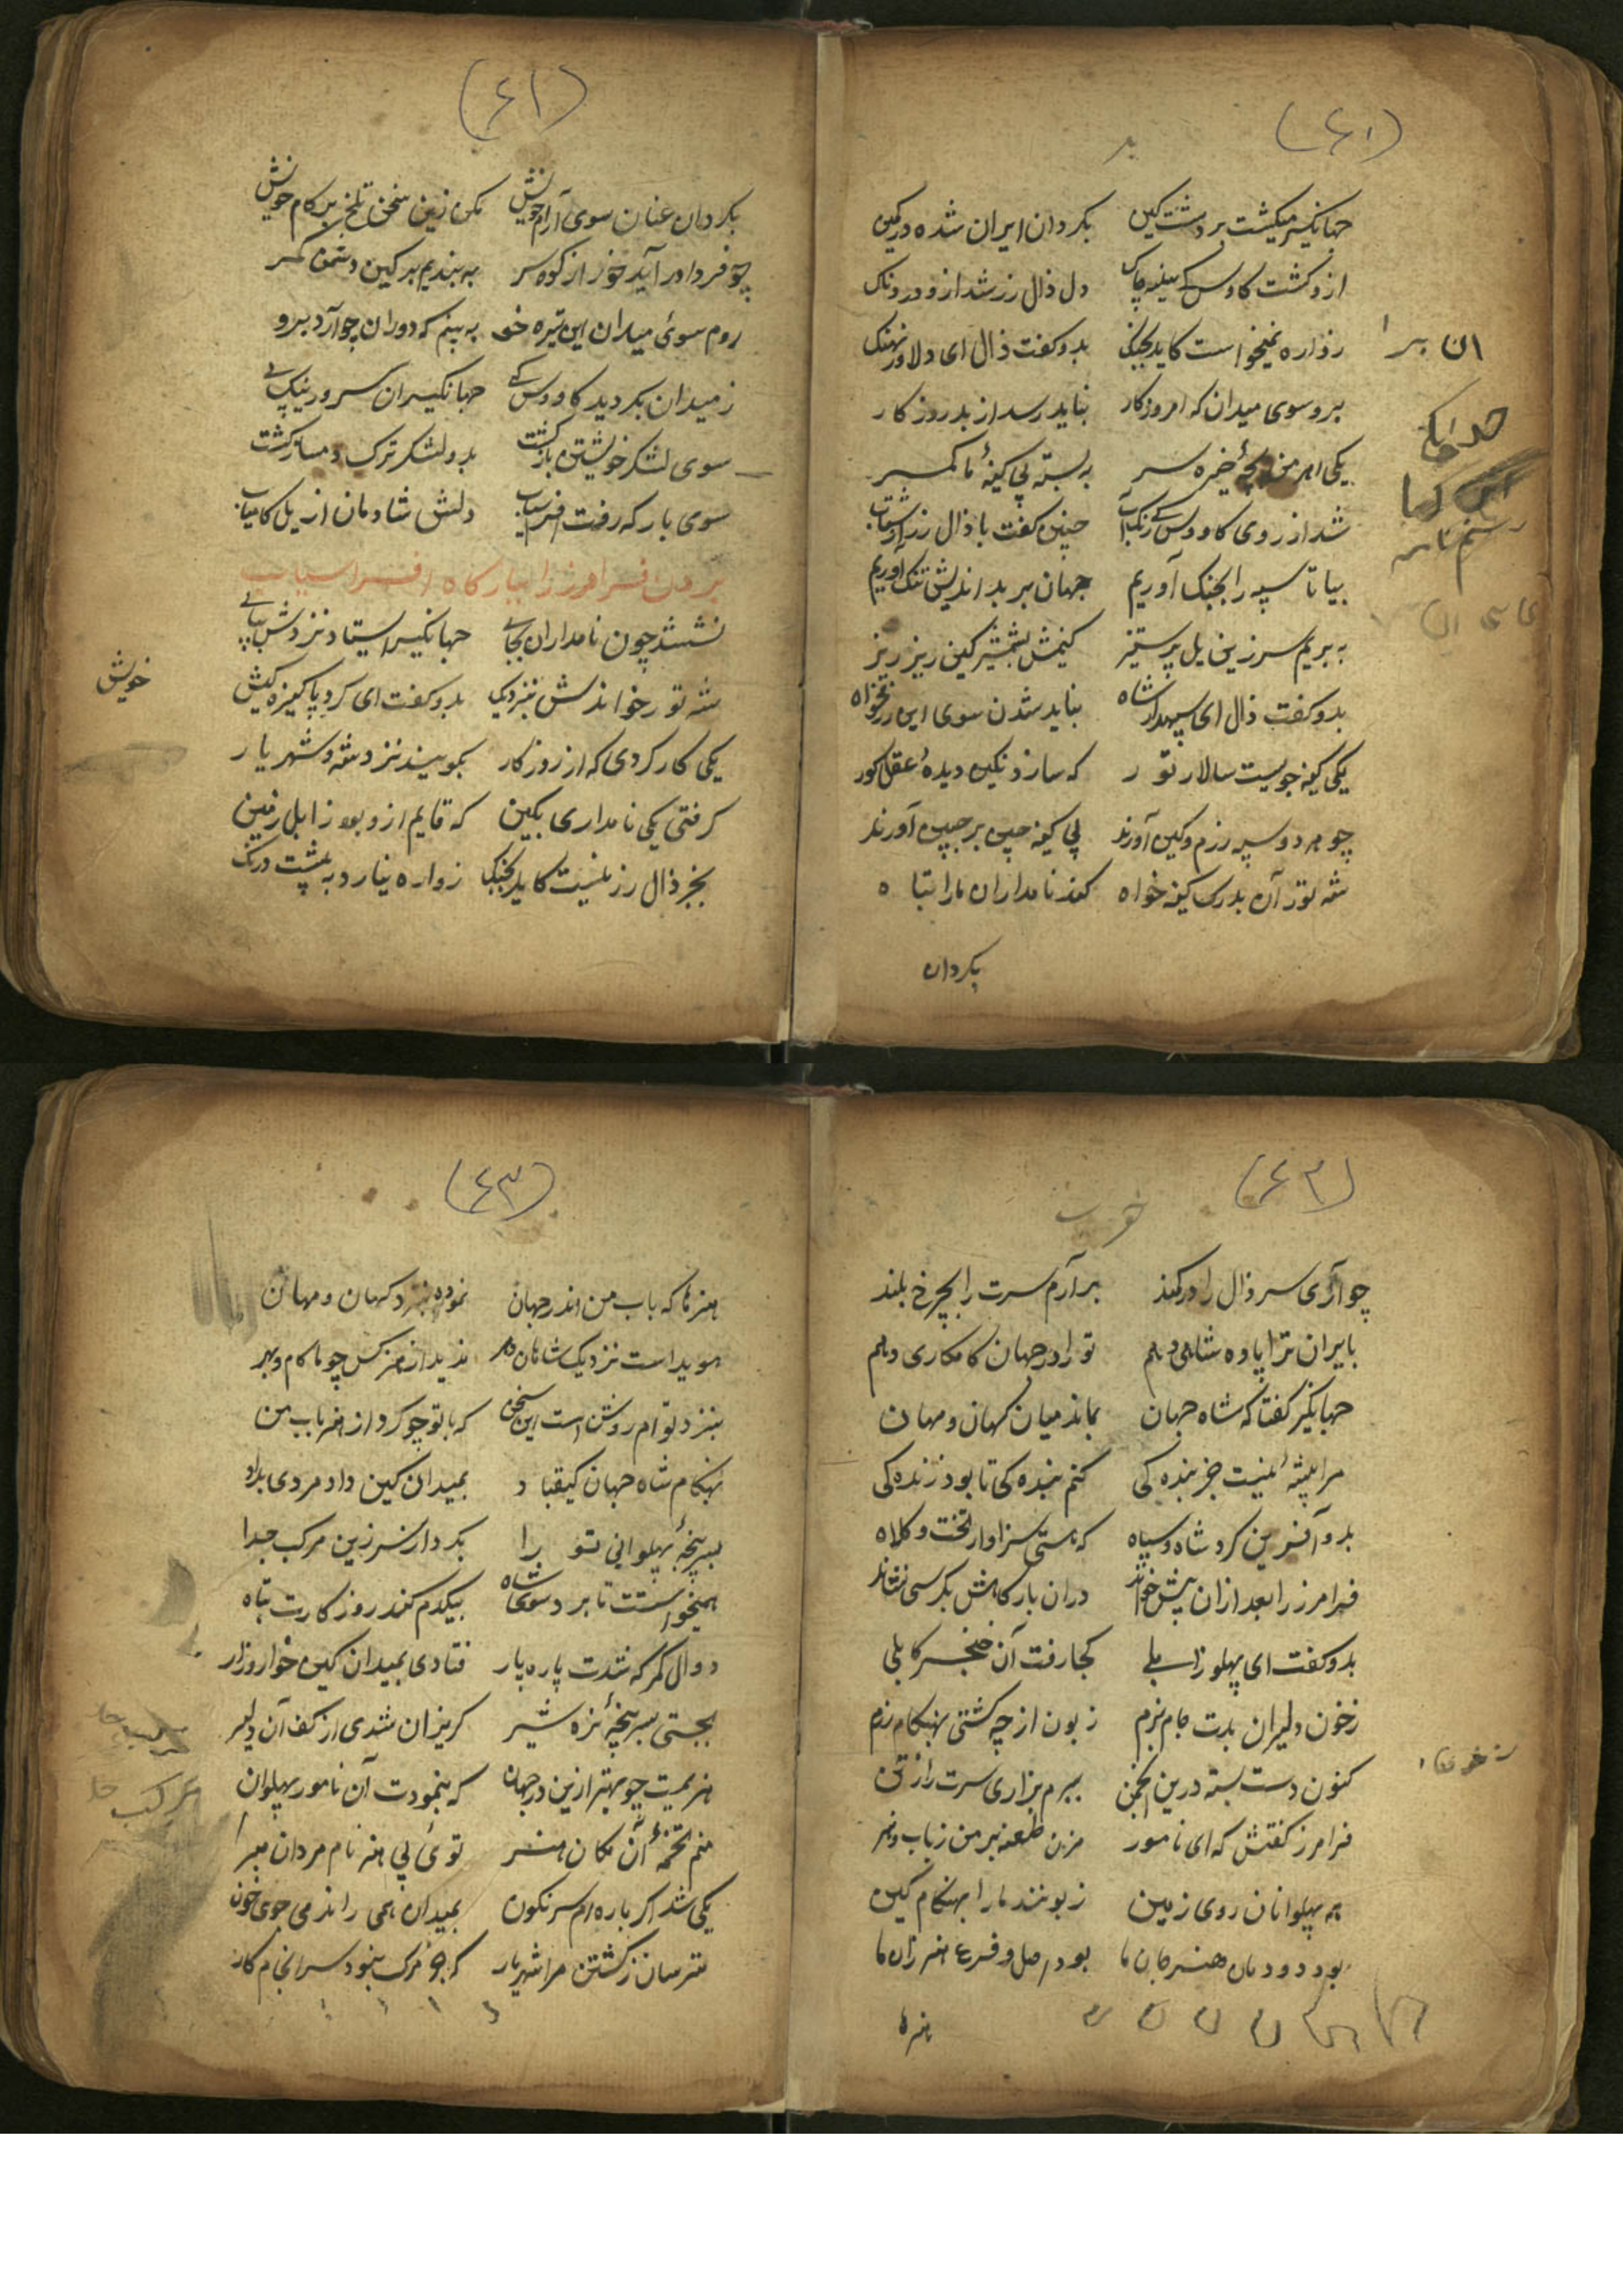 (۴۱)
جهانگیر میکشت بر دشت کین بکردان ایران شده در کمین
ازو کشت کاوس کی سینه چاک دل ذال زر شد ازو دردناک
زواره نمیخواست کاید بجنک بدو کفت ذال ای دلاور نهنک
برو سوی میدان که امروز کار نباید رسد از بد روزکار
یکی اهرمن بچهٔ خیره سر به بسته پی کینهٔ ما کمر
شد از روی کاووس کی رنک آب چنین کفت با ذال زر
بیا تا سپه را بجنک آوریم جهان بر بداندیش تنک آوریم
به بریم سر زین یل پر ستیز کنیمش بشمشیر کین ریز ریز
بدو کفت ذال ای سپهدار شاه نباید شدن سوی این رزمخواه
یکی کینه جویست سالار تور که سازد نکین دیدهٔ عقل کور
چو هر دو سپه رزم و کین آورند پی کینه چین بر جبین آورند
شه تور آن بدرک کینه خواه کند نامداران ما را تباه
بکردان
ان بر
(۴۱)
بکردان عنان سوی آرام خویش مکن زین سخن تلخ بر کام خویش
چو فردا در آید خور از کوه سر به بندیم بر کین دشمن کمر
روم سوی میدان این تیره خو به بینم که دوران چو آرد برو
ز میدان بکردید کاووس کی جهانکیر ان سرور نیک پی
سوی لشکر خویشتن بازکشت بدو لشکر ترک دمساز کشت
سوی بارکه رفت افراسیاب دلش شادمان از یل کامیاب
بردن فرامرز را ببارکاه افراسیاب
نشستند چون نامداران بجای جهانکیر استاد نزدش بپای
شه تور خواندش بنزدیک خویش بدو کفت ای کرد پاکیزه کیش
یکی کار کردی که از روزکار بکویند نزد شه و شهریار
کرفتی یکی نامداری بکین که قایم ازو بود زابل زمین
بجز ذال زر نیست کاید بجنک زواره نیارد به پشت درنک
(۴۳)
چو آری سر ذال را در کمند برآرم سرت را بچرخ بلند
بایران ترا پاوه شاهی دهم تو را در جهان کامکاری دهم
جهانکیر کفتا که شاه جهان بماند میان کهان و مهان
مرا پیشه‌ٔ نیست جز بنده کی کنم بنده کی تا بود زنده کی
بدو آفرین کرد شاه و سپاه که هستی سزاوار تخت و کلاه
فرامرز را بعد ازان پیش خواند دران بارکاهش بکرسی نشاند
بدو کفت ای پهلو زابلی کجا رفت آن خنجر کابلی
ز خون دلیران بدت جام بزم زبون از چه کشتی بهنکام رزم
کنون دست بسته درین انجمن ببرم بزاری سرت را ز تن
فرامرز کفتش که ای نامور مزن طعنه بر من ز باب و هنر
همه پهلوانان روی زمین زبونند ما را بهنکام کین
بود دودمان هنر جان ما بود اصل و فرع هنر زان ما
هنرها
(۴۳)
هنرها که باب من اندر جهان نموده بنزد کهان و مهان
هویداست نزدیک شاهان دهر ندید از هنر کس چو ما کام و بهر
بنزد تو ام روشن است این سخن که با تو چو کرد از هنر باب من
بهنکام شاه جهان کیقباد بمیدان کین داد مردی بداد
بسر پنجهٔ پهلوانی تو را بکرد از سر زین مرکب جدا
همیخواست تا بردت سوی شاه بیکدم کند روز کارت تباه
دوال کمر که شدت پاره پار فتادی بمیدان کین خوار و زار
بجستی سر پنجهٔ نره شیر کریزان شدی از کف آن دلیر
هزیمیت چو بهتر ازین در جهان که بنمودت آن نامور پهلوان
منم تخمهٔ آن مکان هنر توئی بی هنر نام مردان مبر
یکی شد اکر باره ام سرنکون بمیدان همی راندمی جوی خون
مترسان ز کشتن مرا شهریار که جز مرک نبود سرانجام کار
خویش
مرکب جدا